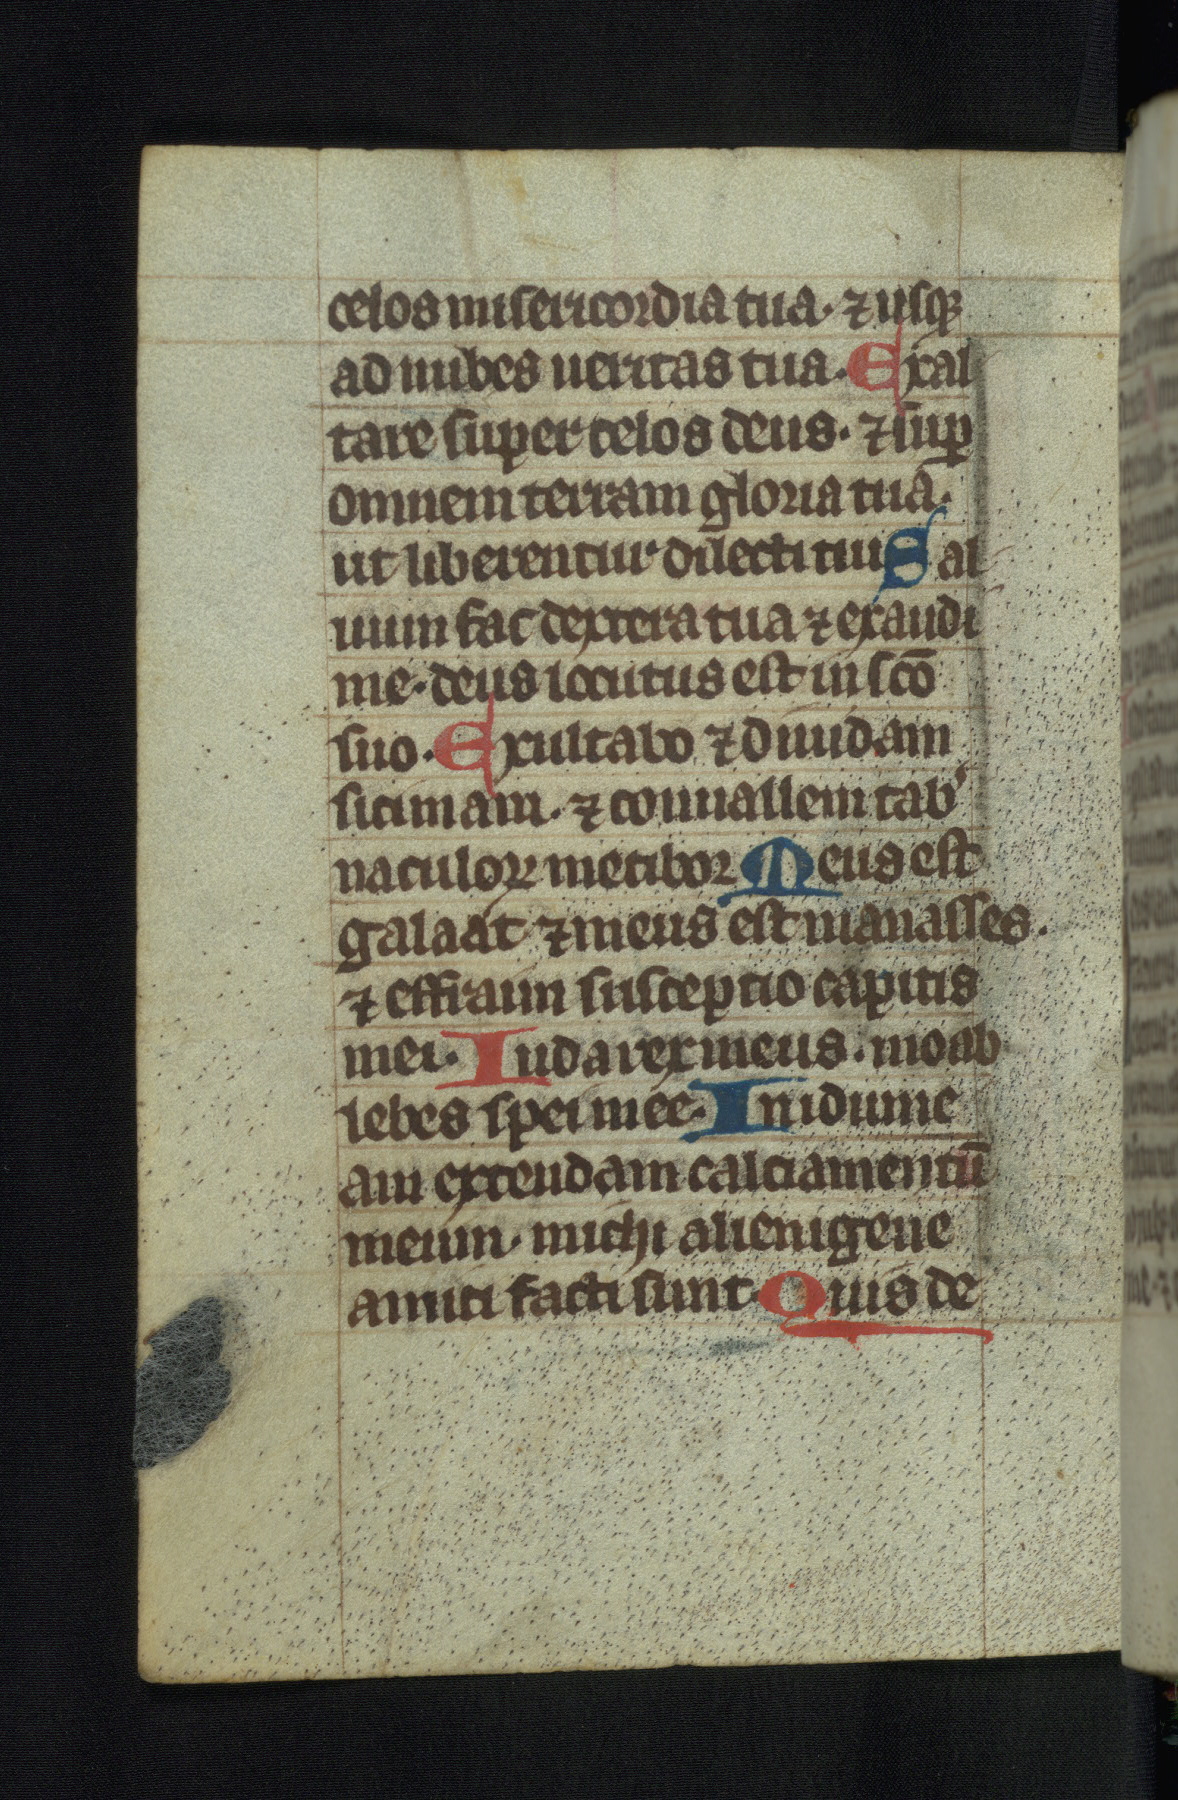 celos misericordia tua · ⁊ usqꝫ
ad nubes ueritas tua · Exal
tare super celos deus · ⁊ sup̄
omnem terram gloria tua ·
ut liberentur dilecti tui Sal
uum fac dextera tua ⁊ exaudi
me · deus locutus est in sc̄o
suo · Exultabo ⁊ diuidam
sicimam · ⁊ conuallem tab̉
naculoꝝ metibor Meus est
galaat ⁊ meus est manasses ·
⁊ effraim susceptio capitis
mei · Iuda rex meus · moab
lebes spei mee · In idume
am extendam calciamentū
meum · michi alienigene
amici facti sunt · Quis de